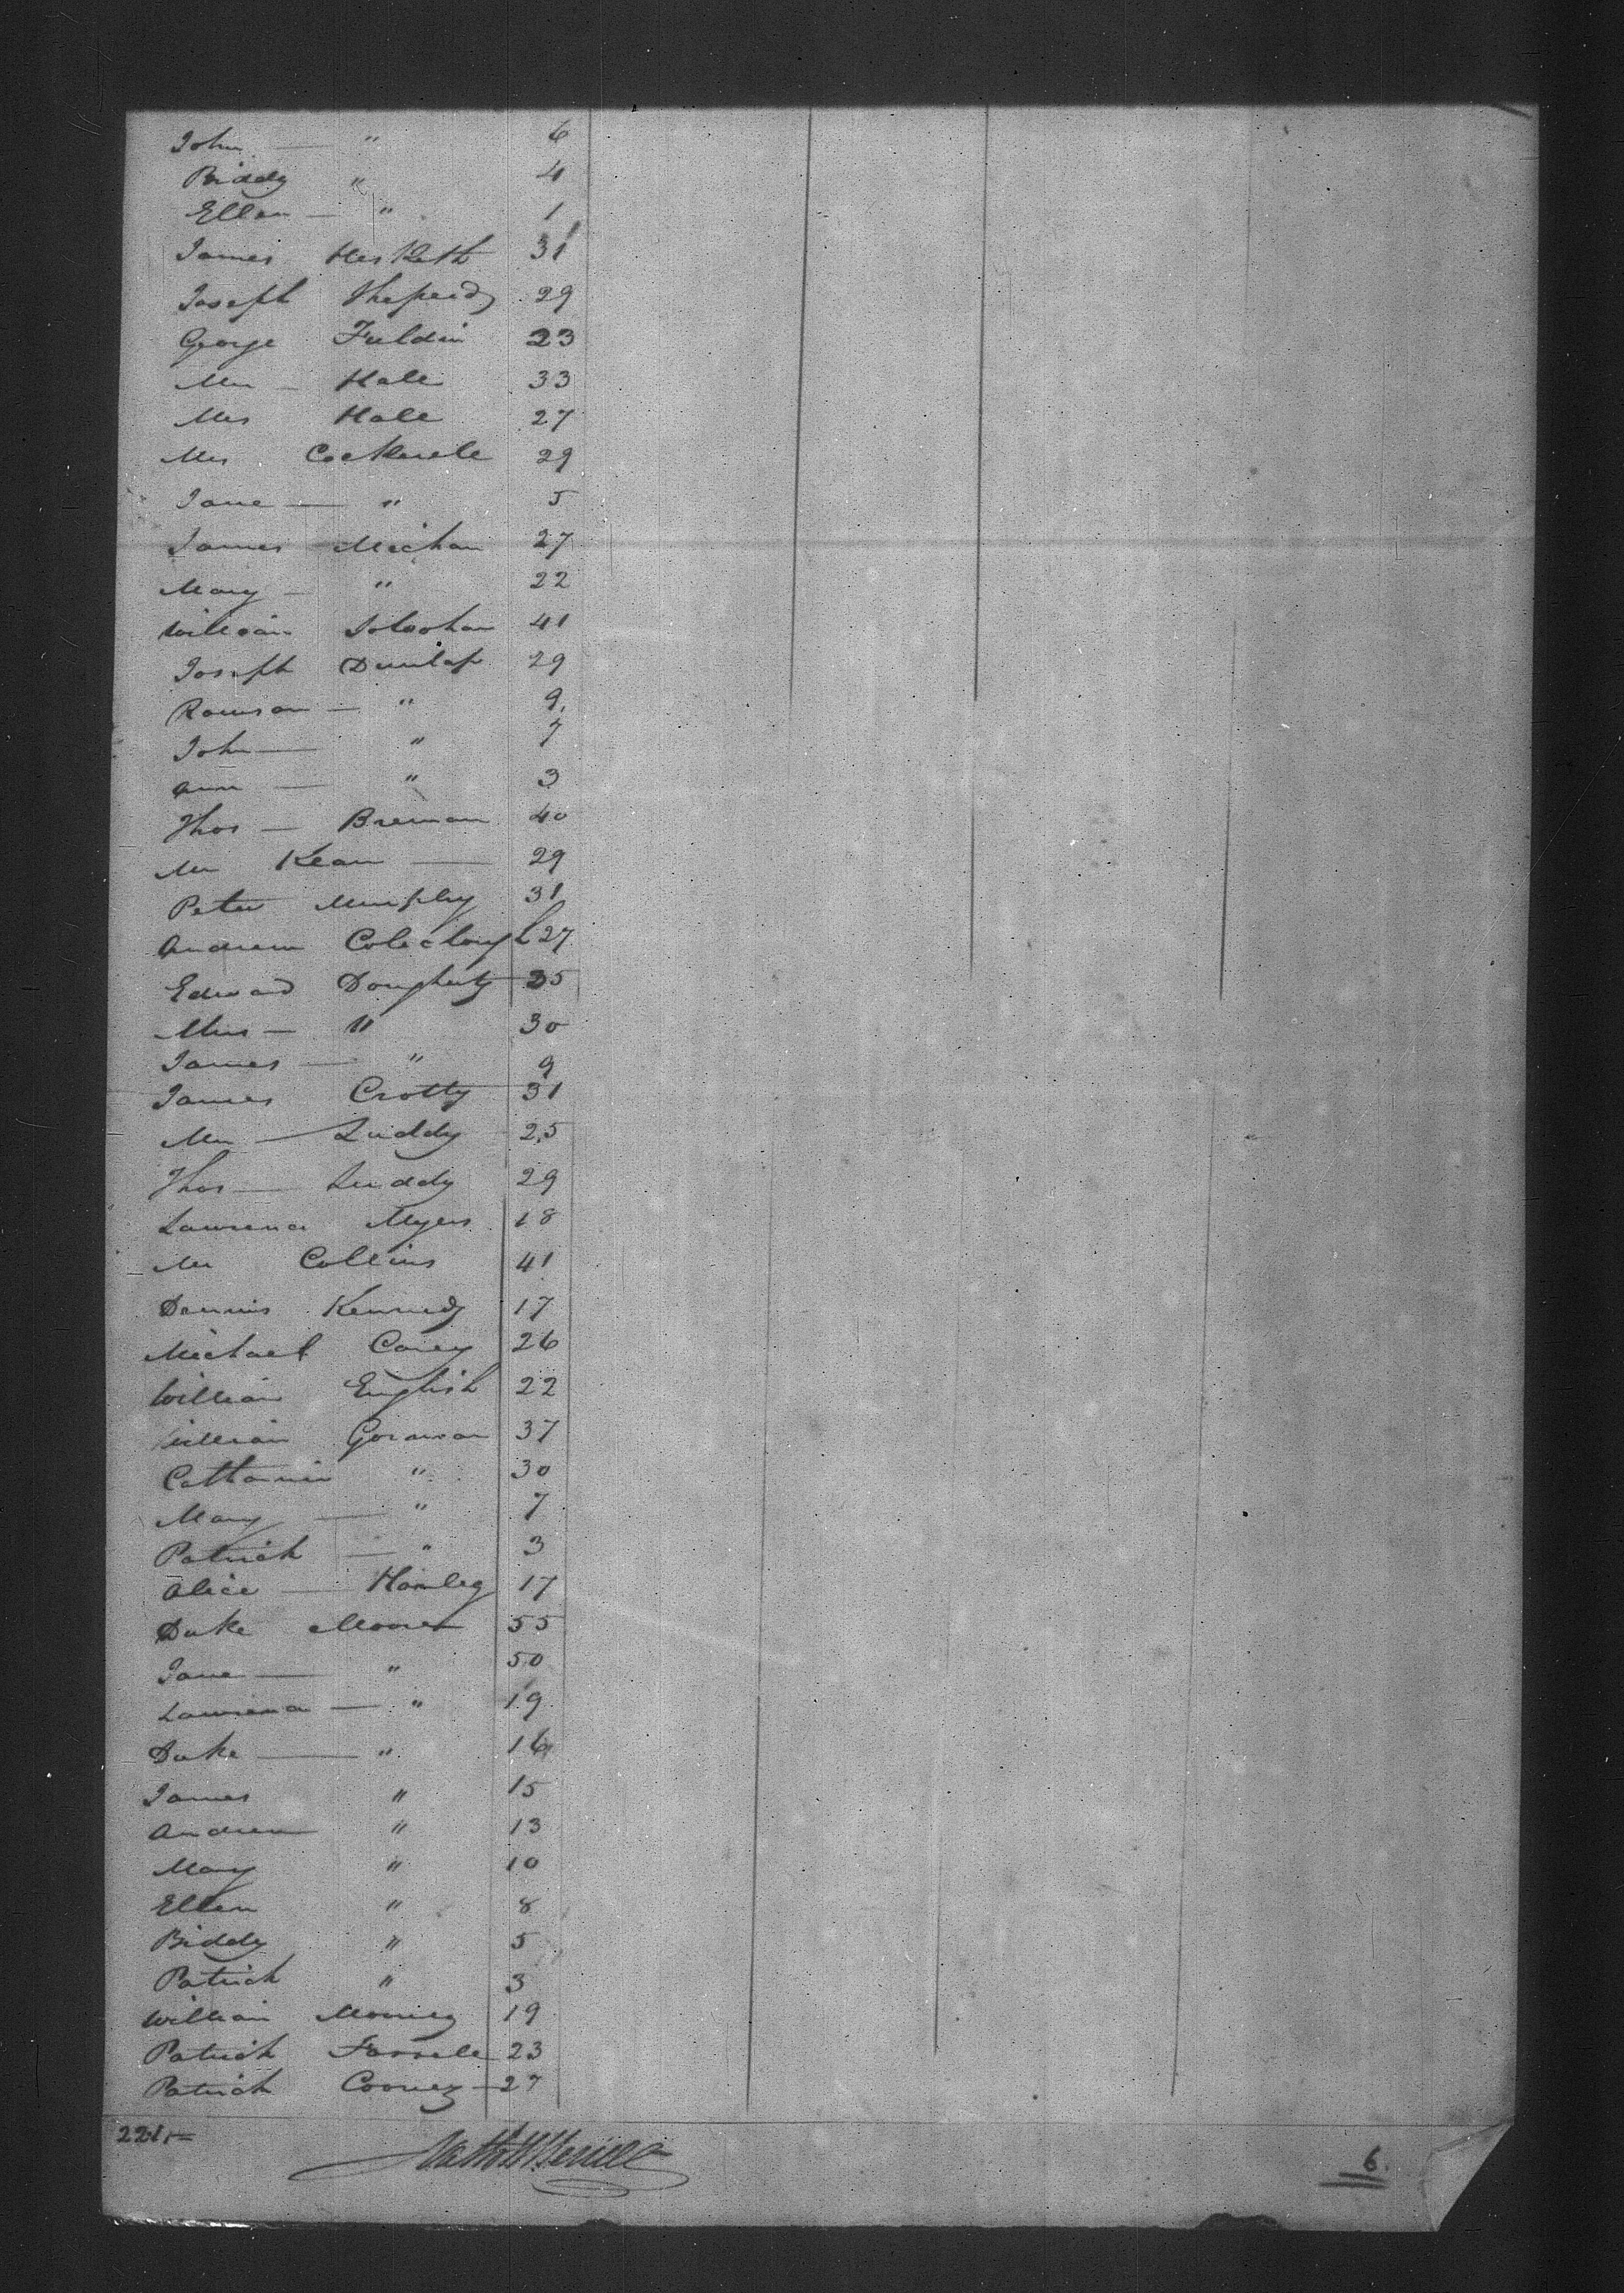 John — " 6
Biddy " 4
Ellen — " 1
James Hesketh 31
Joseph 29
George Fieldin 23
Mr — Hale 33
Mrs Hale 27
Mrs Cockerele 29
Jane — " 5
James Mechan 27
Mary — " 22
William 41
Joseph Dunlap 29
— " 9
John — " 7
Ann — " 3
Thos — Brennan 40
Mr Kean — 29
Peter Murphy 31
Andrew Coleclough 27
Edward Dougherty 35
Mrs — " 30
James — " 9
James Crotty 31
Mr — Luddy 25
Thos — Luddy 29
Lawrence Myers 18
Mr Collins 41
Dennis Kennedy 17
Michael Carey 26
William English 22
William Gorman 37
Catharine " 30
Mary — " 7
Patrick — " 3
Alice — Hanley 17
Duke Moore 55
Jane — " 50
Lawrence — " 19
Duke — " 16
James " 15
Andrew " 13
Mary " 10
Ellen " 8
Biddy " 5
Patrick " 3
William Mooney 19
Patrick Farrele 23
Patrick Cooney — 27
221
6